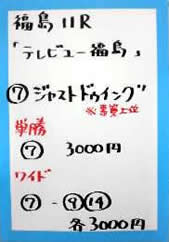 福島11R
「テレビユー福島」
⑦ジャストドゥイング
※賞金上位
単勝
⑦ 3000円
ワイド
⑦-⑨⑭
各3000円